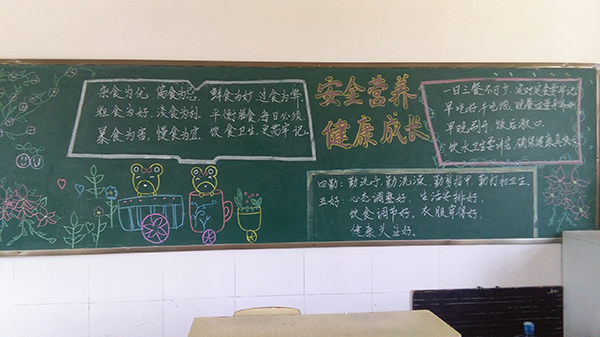 杂食为优 偏食为忌 鲜食为好 过食为弊
粗食为好 淡食为利 平衡膳食 每日必须
暴食为害 慢食为宜 饮食卫生 更需牢记
安全营养
健康成长
一日三餐不可少，定时定量要牢记
早吃好午吃饱，晚餐适量才算妙
早晚刷牙，饭后漱口。
饮水卫生要讲究，确保健康
四勤：勤洗手，勤洗澡，勤剪指甲，勤打扫卫生。
五好：心态调整好，生活安排好，
饮食调节好，衣服穿得好，
健康关注好。